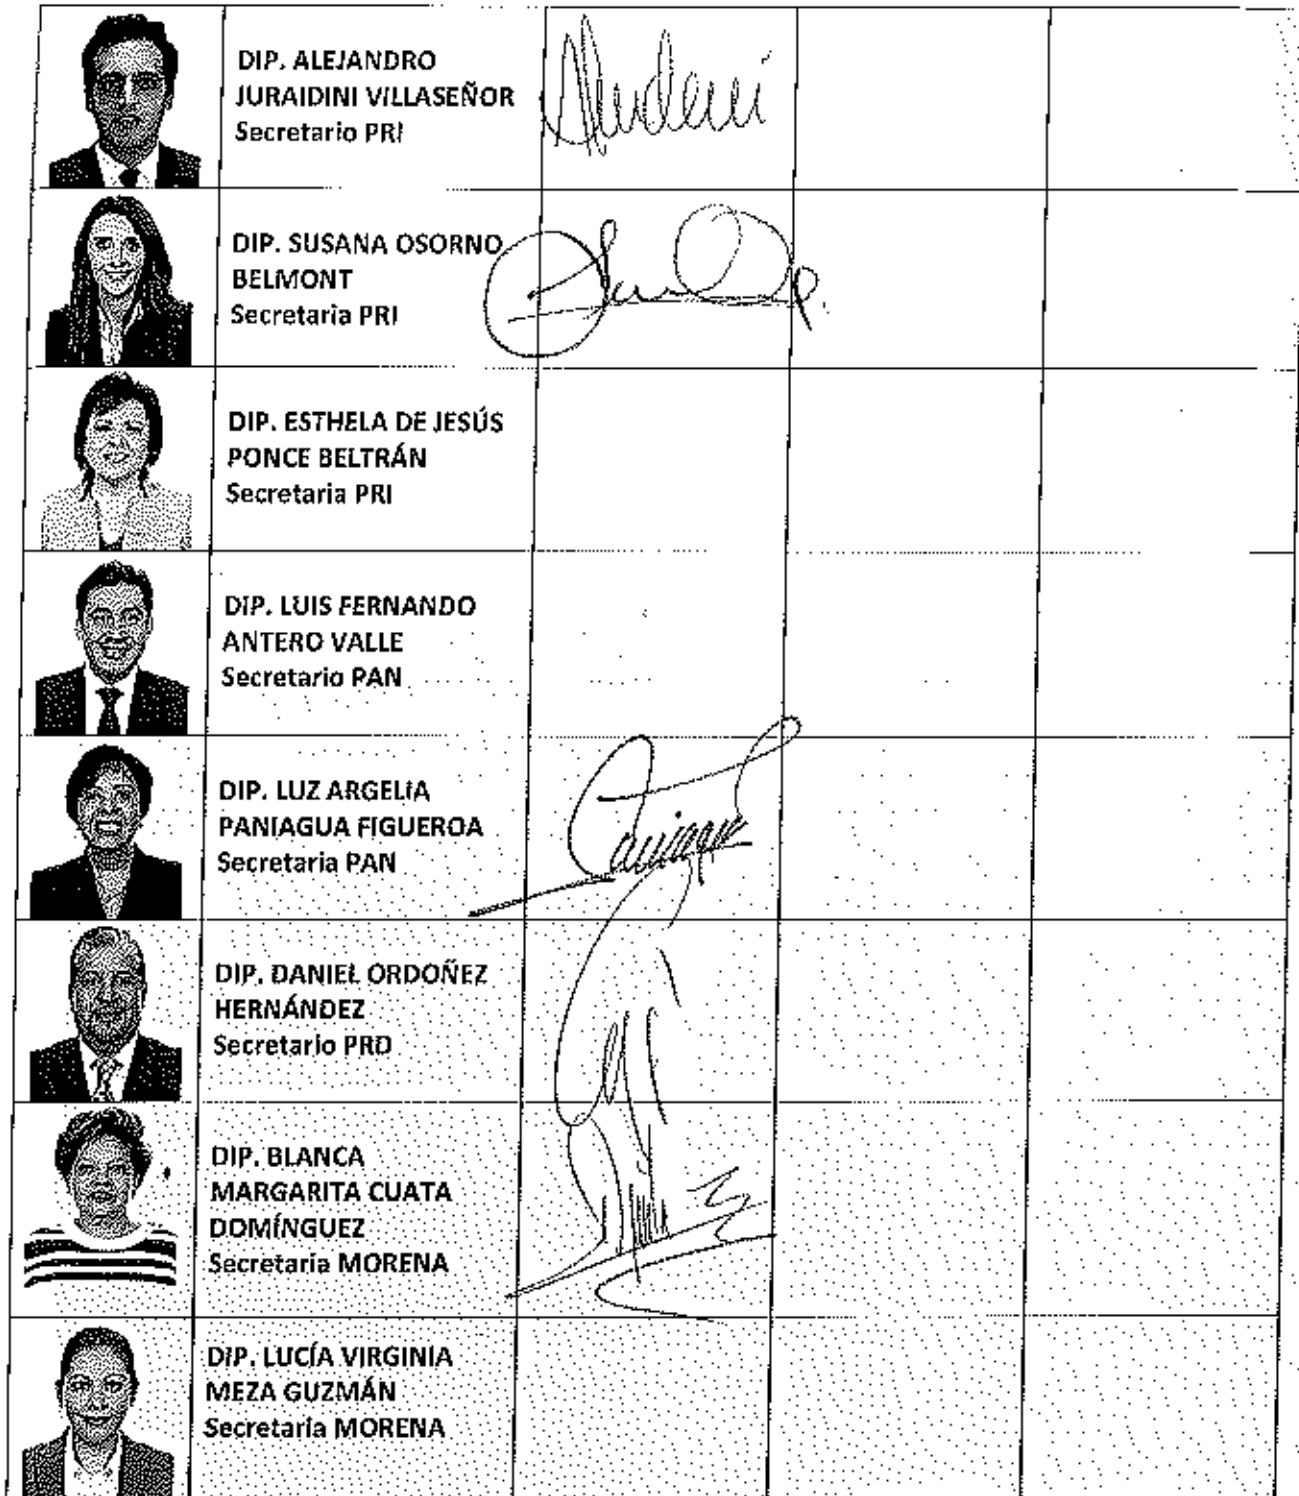 DIP. ALEJANDRO
JURAIDINI VILLASEÑOR
Secretario PRI
DIP. SUSANA OSORNO
BELMONT
Secretaria PRI
DIP. ESTHELA DE JESÚS
PONCE BELTRÁN
Secretaria PRI
DIP. LUIS FERNANDO
ANTERO VALLE
Secretario PAN
DIP. LUZ ARGELIA
PANIAGUA FIGUEROA
Secretaria PAN
DIP. DANIEL ORDOÑEZ
HERNÁNDEZ
Secretario PRD
DIP. BLANCA
MARGARITA CUATA
DOMÍNGUEZ
Secretaria MORENA
DIP. LUCÍA VIRGINIA
MEZA GUZMÁN
Secretaria MORENA